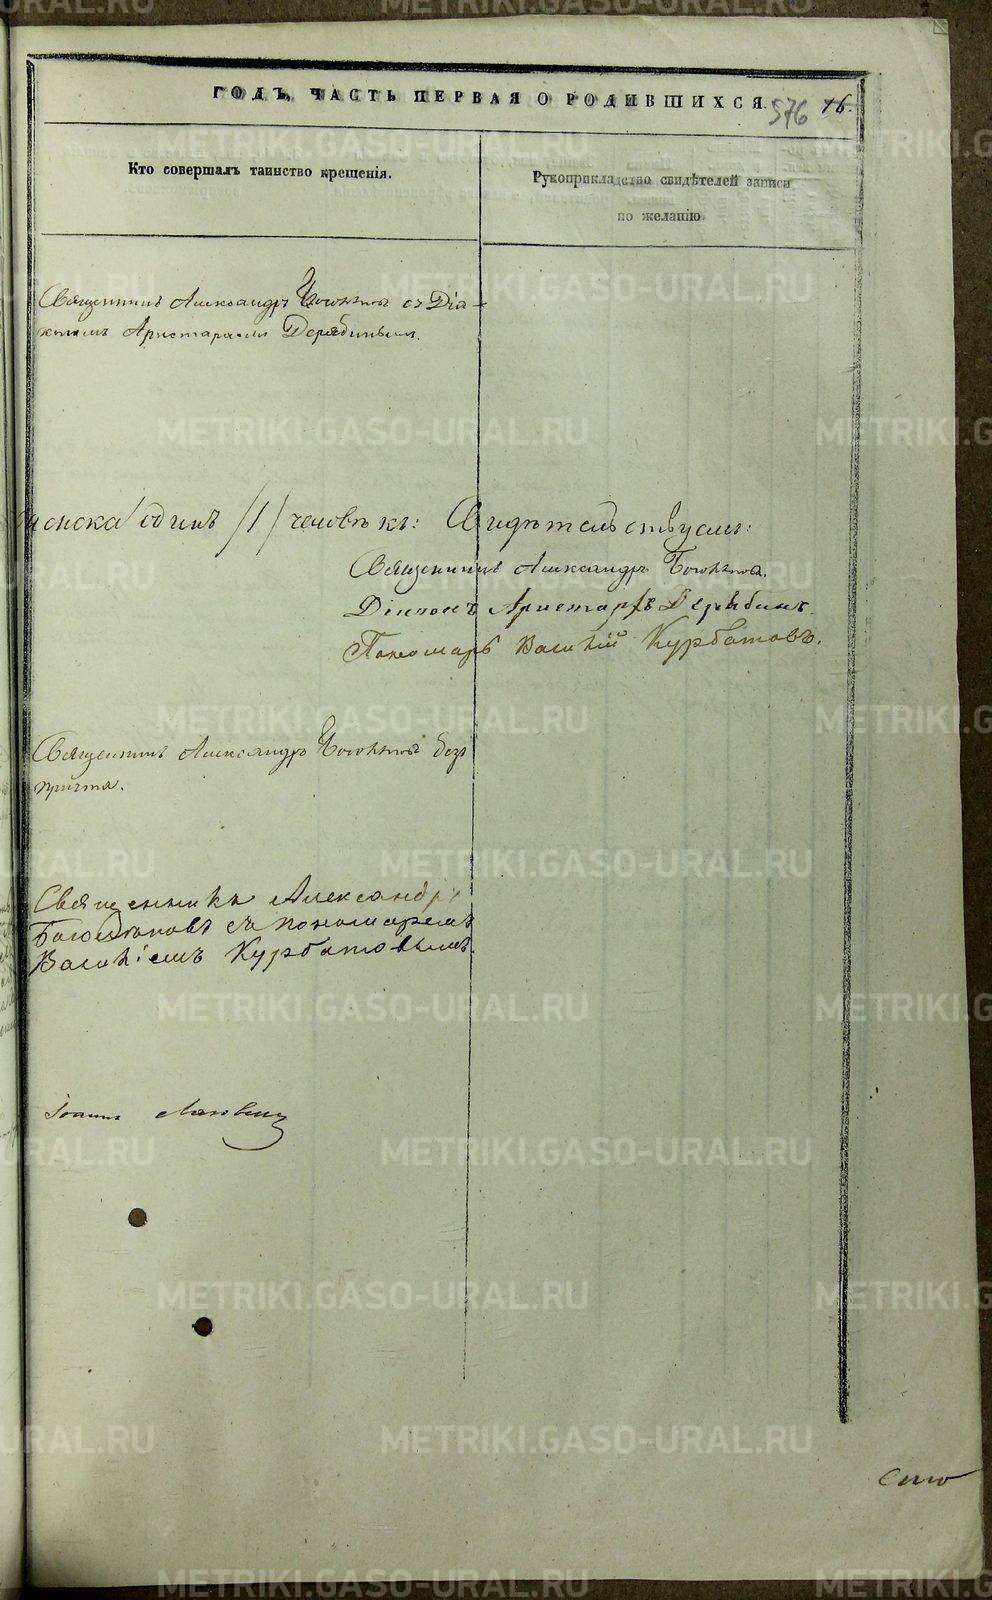 ГОДЪ, ЧАСТЬ ПЕРВАЯ О РОДИВШИХСЯ.
576 16.
Кто совершалъ таинство крещенія.
Рукоприкладство свидѣтелей записи
по желанію
Священникъ Александръ с Діа-
кономъ Аристархомъ Дерябинымъ.
одинъ /1/ человѣкъ: Свидѣтельствуемъ:
Священникъ Александръ
Діаконъ Аристархъ Дерябинъ.
Пономарь Василій Курбатовъ.
Священникъ Александръ безъ
причта.
Священникъ Александръ
съ пономаремъ
Василіемъ Курбатовымъ.
Іоаннъ
METRIKI.GASO-URAL.RU